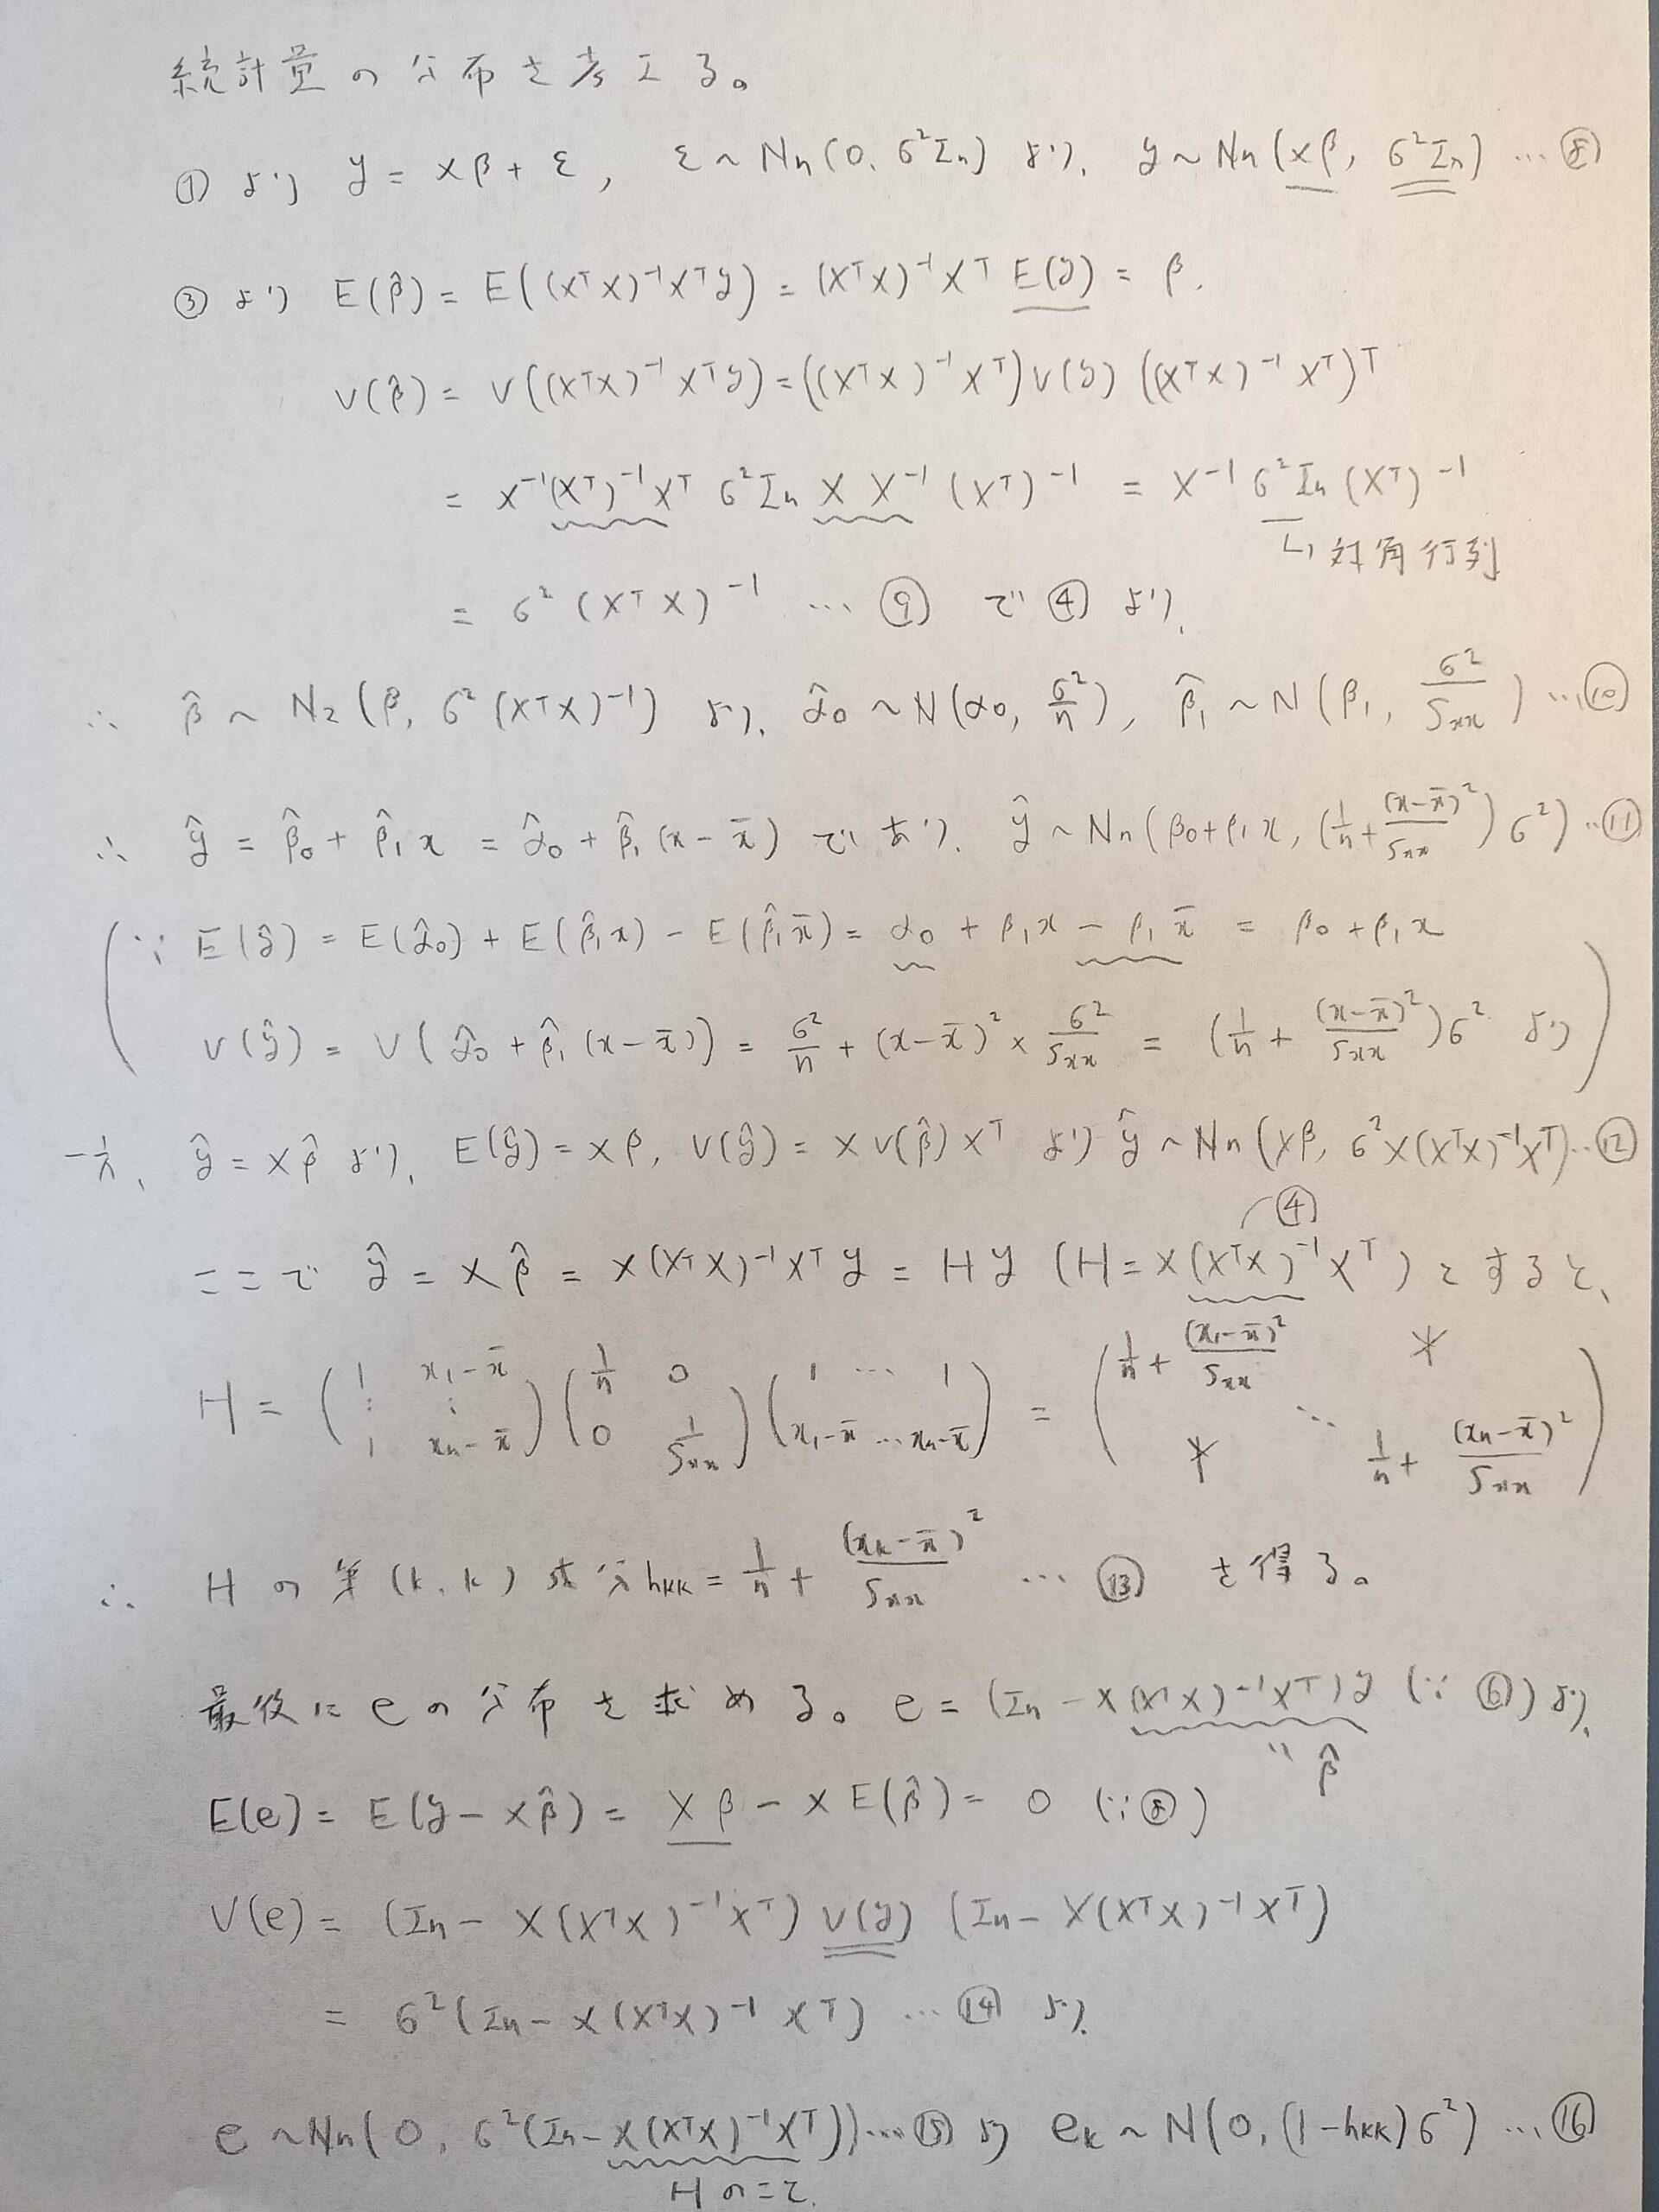 統計量の分布を考える。
① より y = Xβ + ε , ε ~ Nn(0, σ²In) より、 y ~ Nn(Xβ, σ²In) … ⑧
③ より E(β̂) = E((XᵀX)⁻¹Xᵀy) = (XᵀX)⁻¹Xᵀ E(y) = β.
V(β̂) = V((XᵀX)⁻¹Xᵀy) = ((XᵀX)⁻¹Xᵀ)V(y) ((XᵀX)⁻¹Xᵀ)ᵀ
= X⁻¹(Xᵀ)⁻¹Xᵀ σ²In X X⁻¹ (Xᵀ)⁻¹ = X⁻¹ σ²In (Xᵀ)⁻¹
↳ 対角行列
= σ² (XᵀX)⁻¹ … ⑨ で ④ より、
∴ β̂ ~ N₂(β, σ²(XᵀX)⁻¹) より、 α̂₀ ~ N(α₀, σ²/n), β̂₁ ~ N(β₁, σ²/Sxx) … ⑩
∴ ŷ = β̂₀ + β̂₁x = α̂₀ + β̂₁(x − x̄) であり、 ŷ ~ Nn(β₀+β₁x, (1/n + (x−x̄)²/Sxx) σ²) … ⑪
(∵ E(ŷ) = E(α̂₀) + E(β̂₁x) − E(β̂₁x̄) = α₀ + β₁x − β₁x̄ = β₀ + β₁x
V(ŷ) = V(α̂₀ + β̂₁(x−x̄)) = σ²/n + (x−x̄)² × σ²/Sxx = (1/n + (x−x̄)²/Sxx)σ² より)
一方、 ŷ = Xβ̂ より、 E(ŷ) = Xβ, V(ŷ) = X V(β̂) Xᵀ より ŷ ~ Nn(Xβ, σ²X(XᵀX)⁻¹Xᵀ) … ⑫
④
ここで ŷ = Xβ̂ = X(XᵀX)⁻¹Xᵀy = Hy (H = X(XᵀX)⁻¹Xᵀ) とすると、
H = (1 x₁−x̄ ⋮ ⋮ 1 xn−x̄)(1/n 0 0 1/Sxx)(1 … 1 x₁−x̄ … xn−x̄) = (1/n + (x₁−x̄)²/Sxx * ⋱ * 1/n + (xn−x̄)²/Sxx)
∴ H の第(k, k)成分 hkk = 1/n + (xk−x̄)²/Sxx … ⑬ を得る。
最後に e の分布を求める。 e = (In − X(XᵀX)⁻¹Xᵀ)y (∵ ⑥) より、
〃 β̂
E(e) = E(y − Xβ̂) = Xβ − X E(β̂) = 0 (∵ ⑧)
V(e) = (In − X(XᵀX)⁻¹Xᵀ) V(y) (In − X(XᵀX)⁻¹Xᵀ)
= σ²(In − X(XᵀX)⁻¹Xᵀ) … ⑭ より、
e ~ Nn(0, σ²(In − X(XᵀX)⁻¹Xᵀ)) … ⑮ より ek ~ N(0, (1−hkk)σ²) … ⑯
Hのこと.